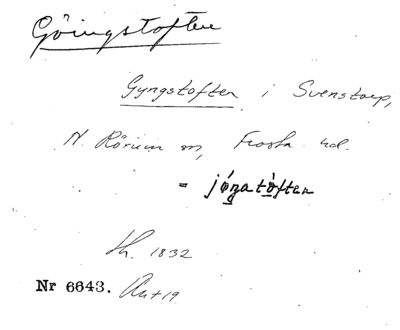 Göingstoften
Gyngstoften i Svenstorp,
N. Rörum sn, Frosta hd.
= jǿŋatòftən
Lh. 1832
Nr 6643.